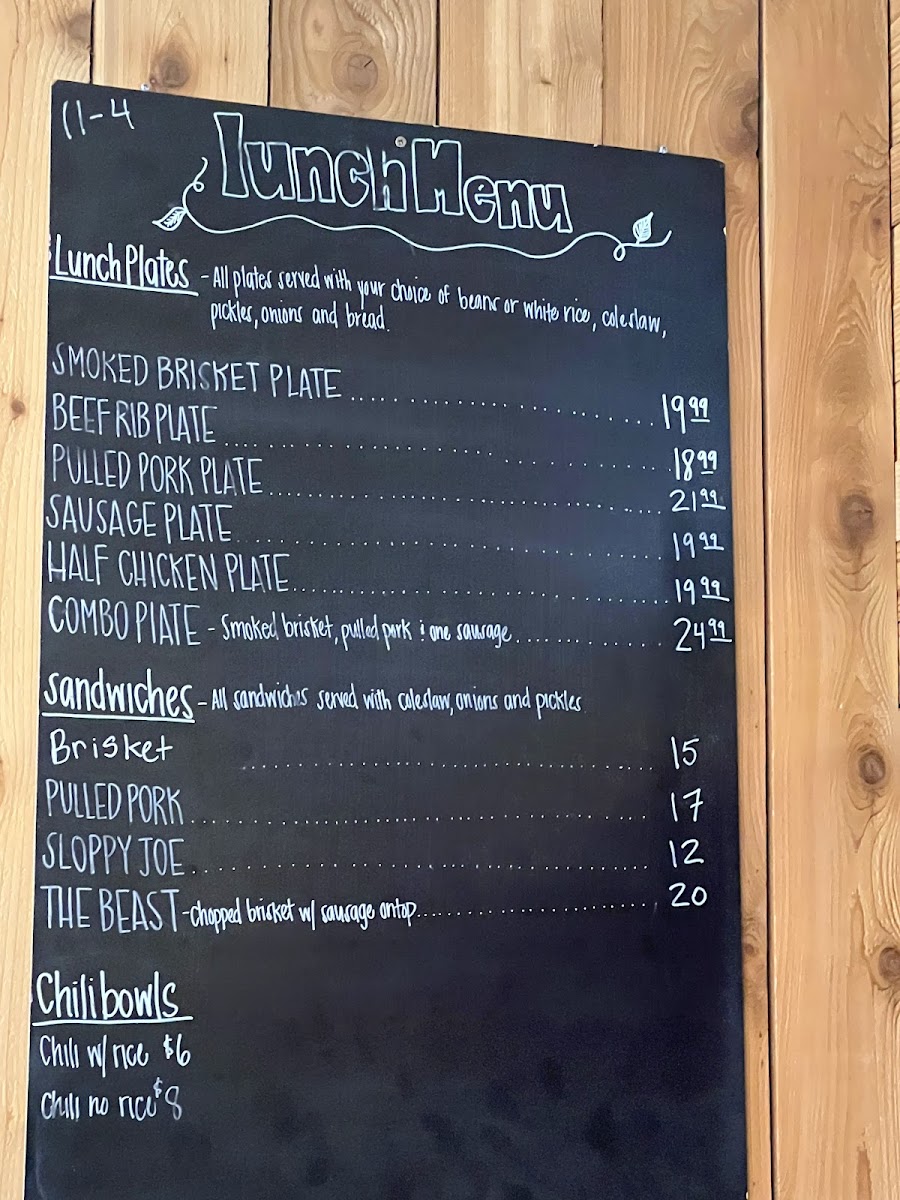 11-4
Lunch Menu
Lunch Plates - All plates served with your choice of beans or white rice, coleslaw,
pickles, onions and bread.
SMOKED BRISKET PLATE.......... 19 99
BEEF RIB PLATE.......... 18 99
PULLED PORK PLATE.......... 21 99
SAUSAGE PLATE.......... 19 99
HALF CHICKEN PLATE.......... 19 99
COMBO PLATE - Smoked brisket, pulled pork & one sausage.......... 24 99
Sandwiches - All sandwiches served with coleslaw, onions and pickles
Brisket .......... 15
PULLED PORK.......... 17
SLOPPY JOE.......... 12
THE BEAST - Chopped brisket w/ sausage ontop.......... 20
Chili bowls
Chili w/ rice $6
Chili no rice $8